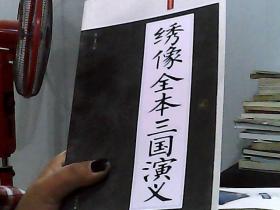 绣像全本三国演义